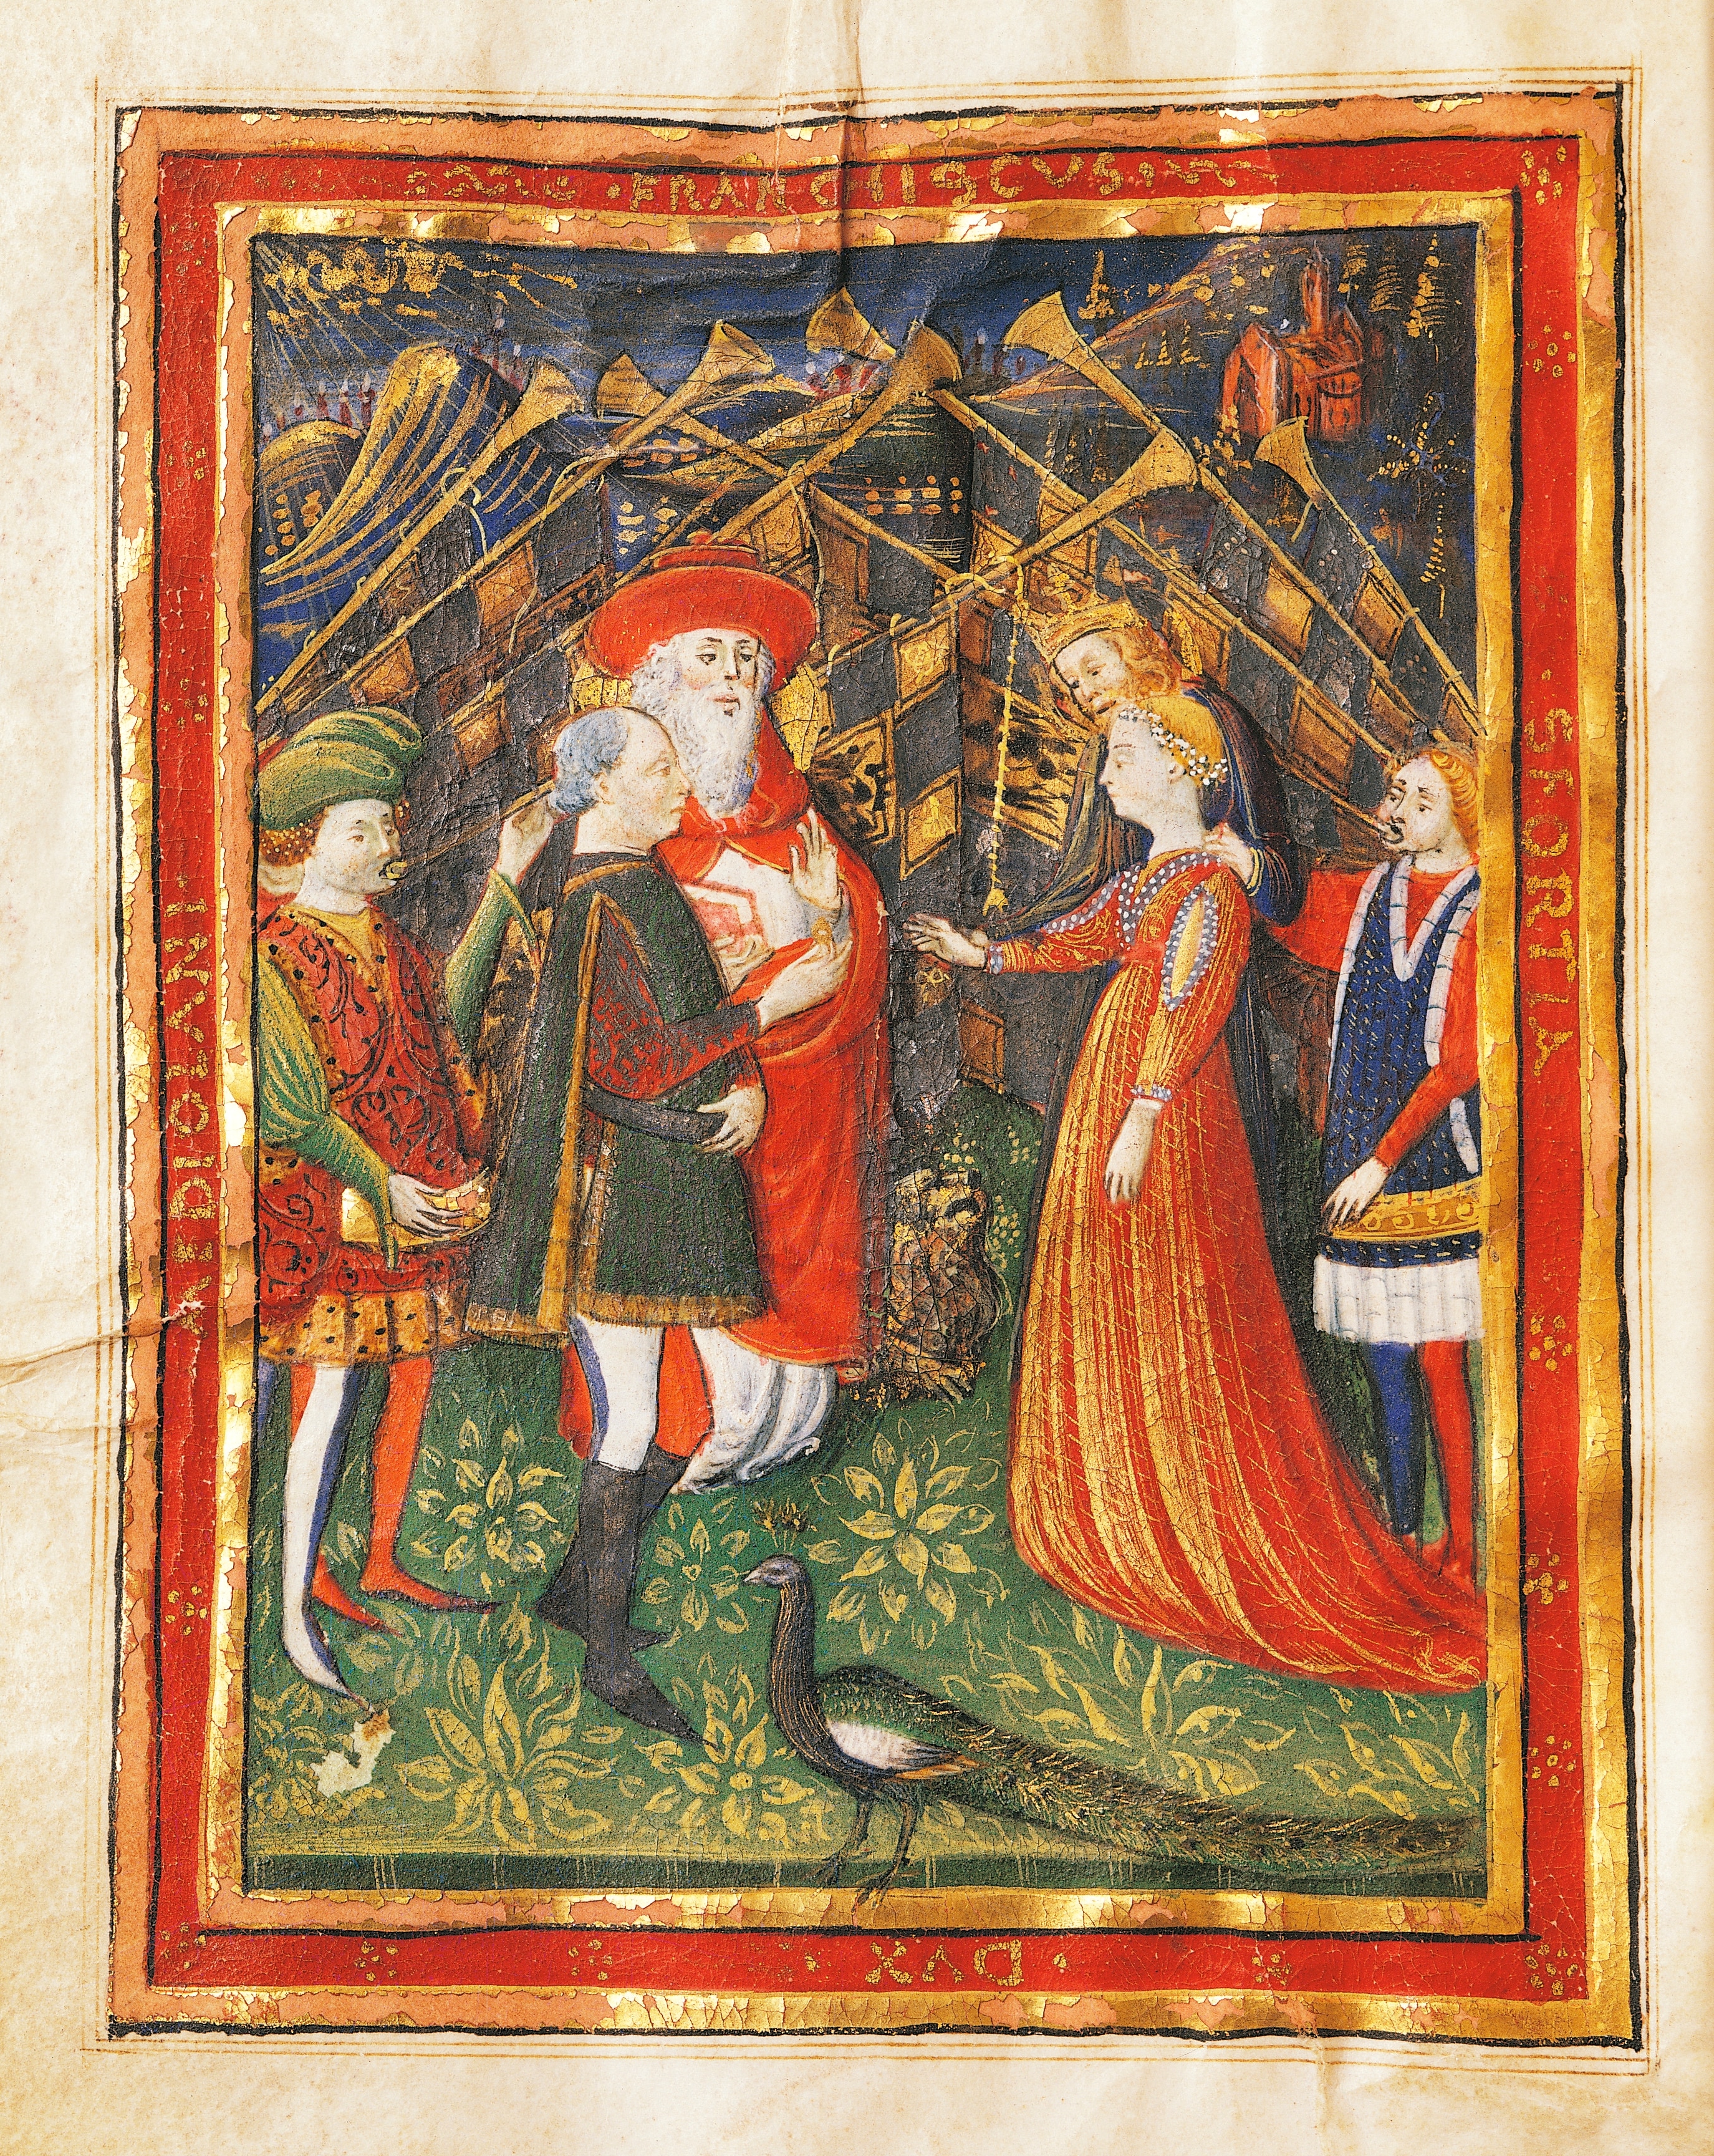 FRANCHISCVS
SFORTIA
DVX
MEDIOLANI